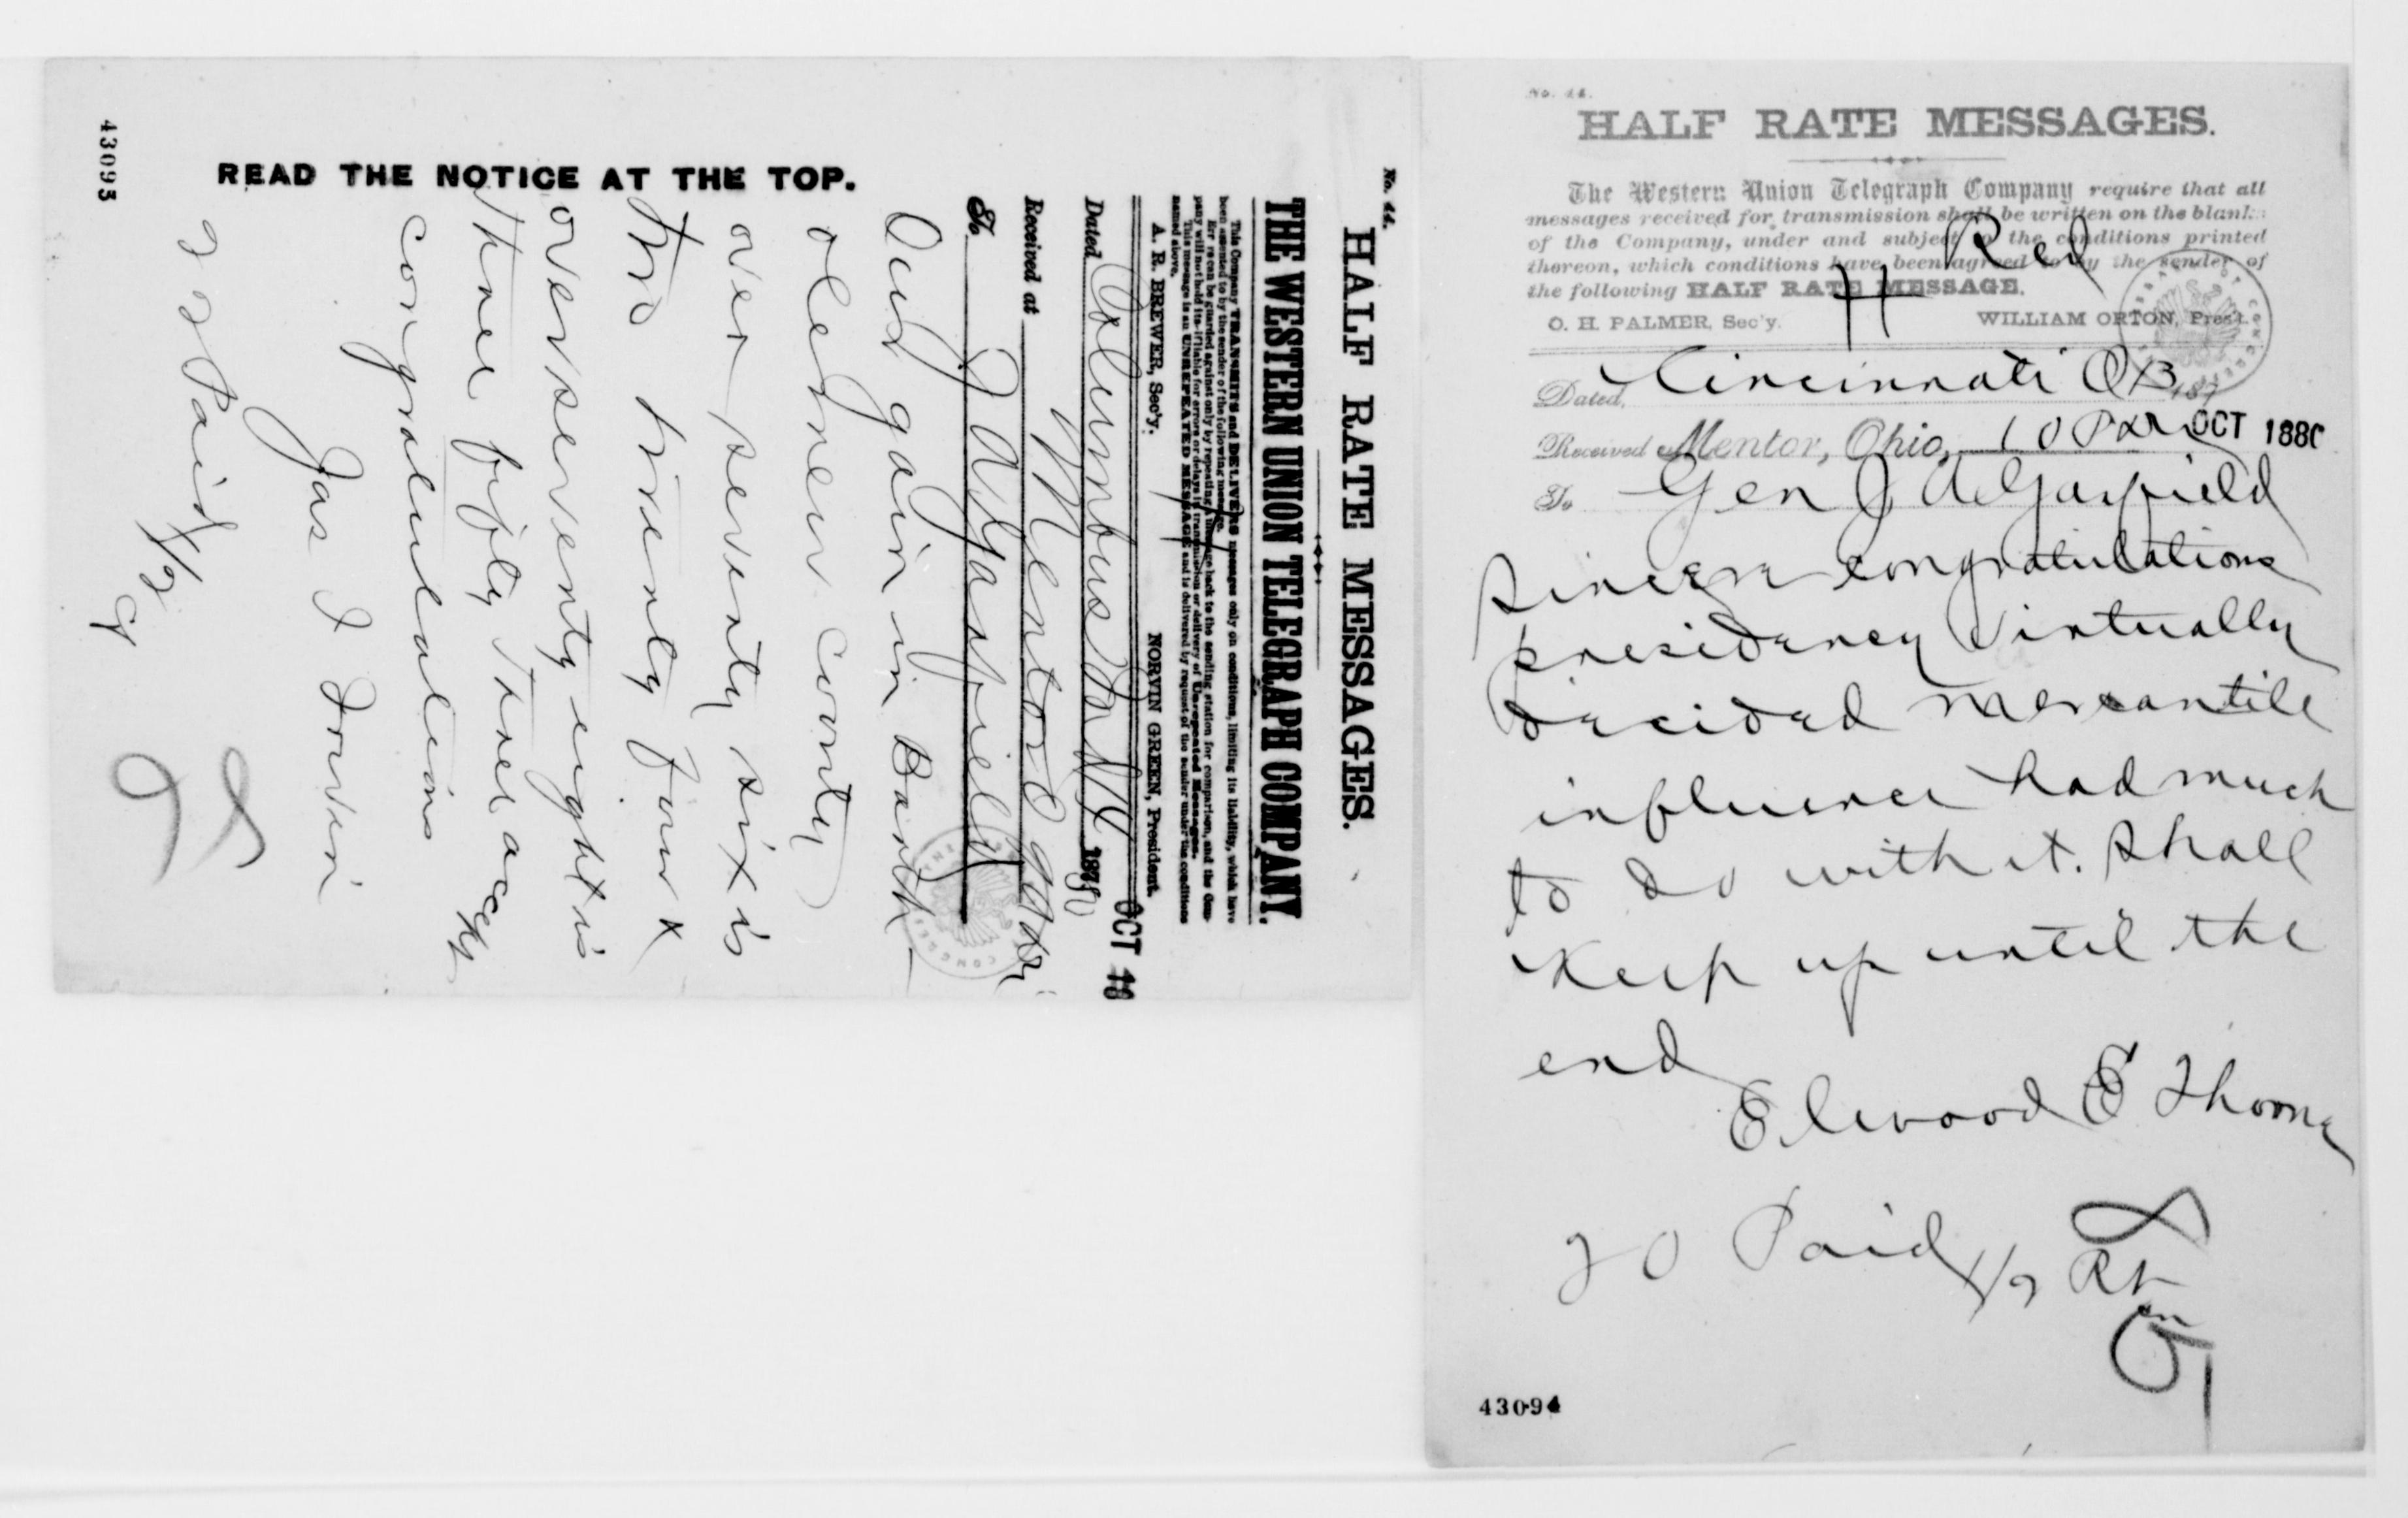 No. 44.
HALF RATE MESSAGES.
THE WESTERN UNION TELEGRAPH COMPANY.
This Company TRANSMITS and DELIVERS messages only on conditions, limiting its liability, which have
been assented to by the sender of the following message.
Errors can be guarded against only by repeating a message back to the sending station for comparison, and the Com-
pany will not hold itself liable for errors or delays in transmission or delivery of Unrepeated Messages.
This message is an UNREPEATED MESSAGE and is delivered by request of the sender under the conditions
named above.
A. R. BREWER, Sec'y. NORVIN GREEN, President.
OCT 13
Dated Columbus 1880
Received at Mentor
To J A Garfield
Our gain in Barth-
olemew county
over seventy six is
two twenty four x
over seventy eight is
three fifty three accept
congratulations
Jas I
22 Paid 1/2
READ THE NOTICE AT THE TOP.
43095
No. 44.
HALF RATE MESSAGES.
The Western Union Telegraph Company require that all
messages received for transmission shall be written on the blanks
of the Company, under and subject to the conditions printed
thereon, which conditions have been agreed to by the sender of
the following HALF RATE MESSAGE.
O. H. PALMER, Sec'y. WILLIAM ORTON, Pres't.
H
Dated, Cincinnati O 13 187
Received at Mentor, Ohio, 10 OCT 1880
To Gen J A Garfield
Sincere congratulations
presidency virtually
decided mercantile
influence had much
to do with it. Shall
keep up until the
end
Elwood E Thorne
20 Paid 1/2 Rt
43094